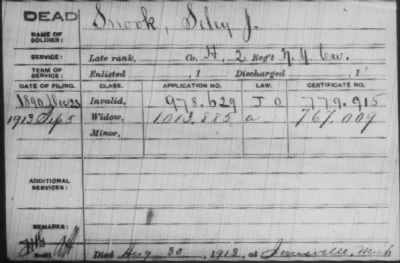 DEAD
NAME OF SOLDIER: Snook, Siley J.
SERVICE: Late rank, Co. H, 2 Reg't N. Y. Cav.
TERM OF SERVICE: Enlisted , 1 Discharged , 1
DATE OF FILING. CLASS. APPLICATION NO. LAW. CERTIFICATE NO.
1890 Dec 23 Invalid, 978.629 J O 779.915
1912 Sep 5 Widow, 1012.885 a 767.009
Minor,
ADDITIONAL SERVICES:
REMARKS:
Died Aug 30, 1912, at Mich